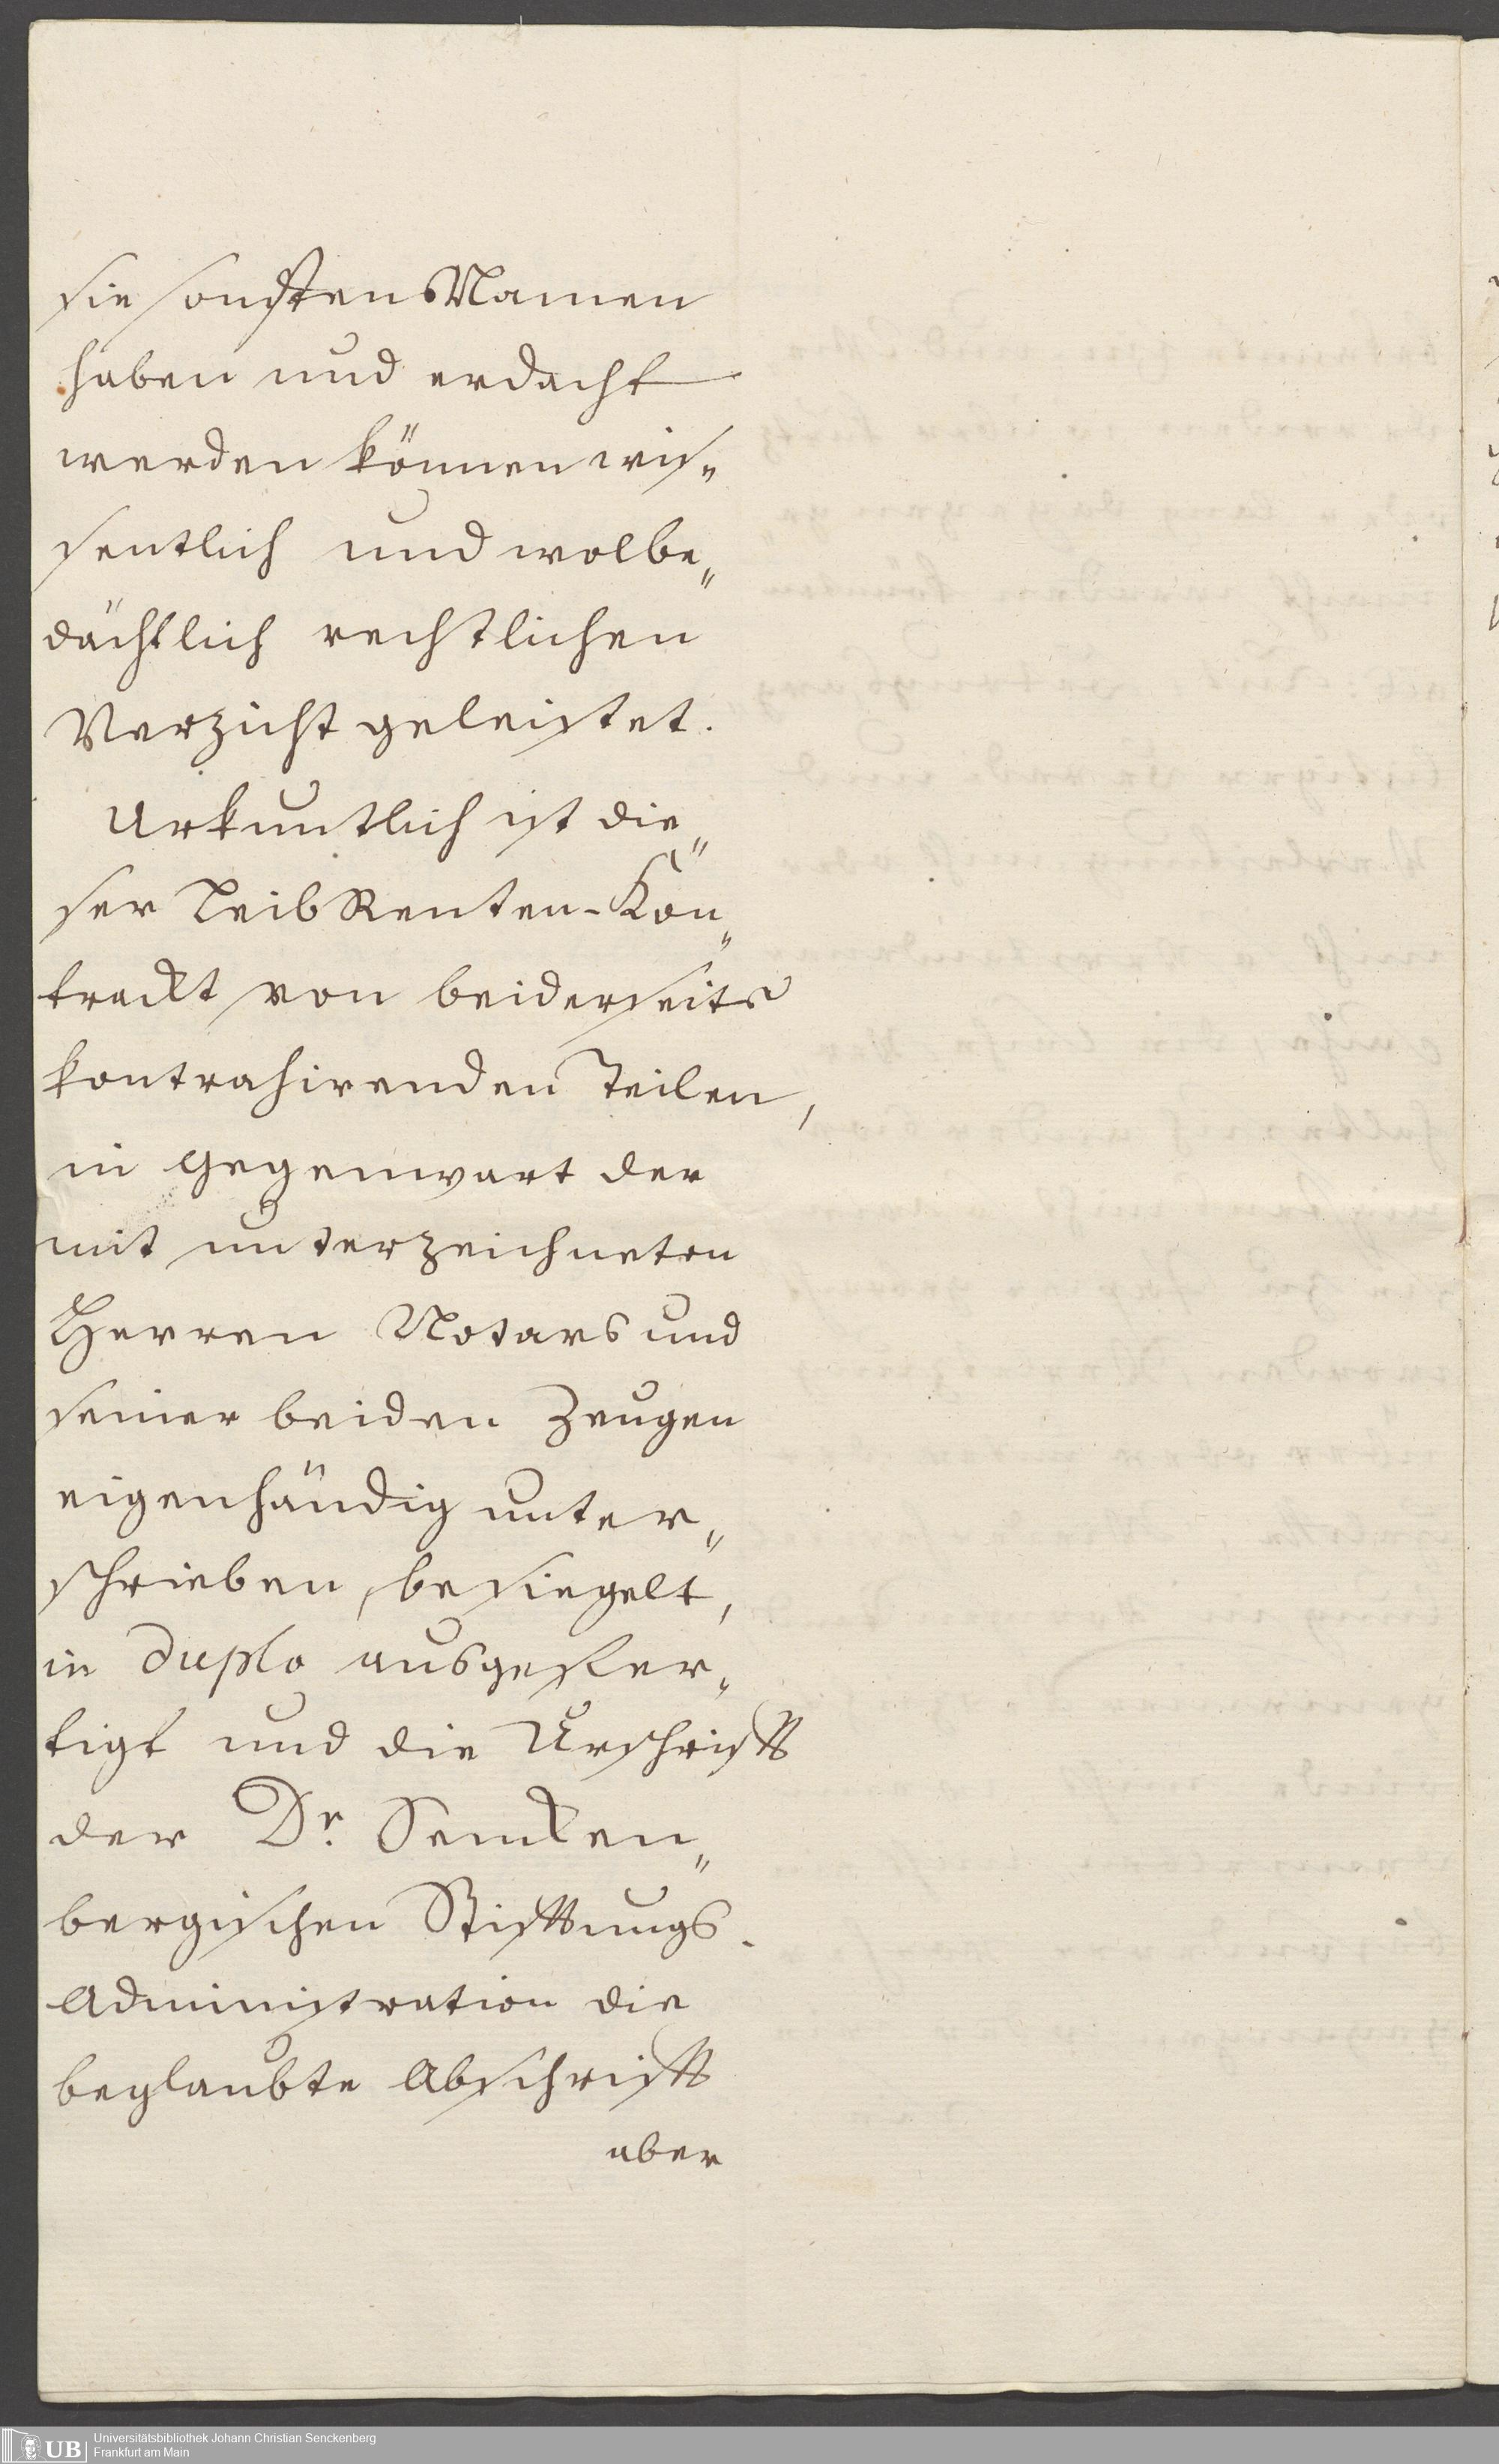 sie sonsten Namen
haben und erdacht
werden können wis„
sentlich und wolbe„
dächtlich rechtlichen
Verzicht geleistet.
Urkuntlich ist die„
ser LeibRenten-Kon„
trackt von beiderseits
kontrahirenden Teilen,
in Gegenwart der
mit unterzeichneten
Herren Notars und
seiner beiden Zeugen
eigenhändig unter„
schrieben, besiegelt,
in Duplo ausgefer„
tigt und die Urschrift
der Dr. Sencken„
bergischen Stiftungs-
Administration die
beglaubte Abschrift
aber
UB
Universitätsbibliothek Johann Christian Senckenberg
Frankfurt am Main